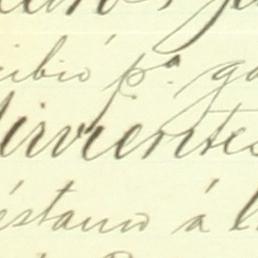 cibió pª ga
Sirvientes
éstamo á l